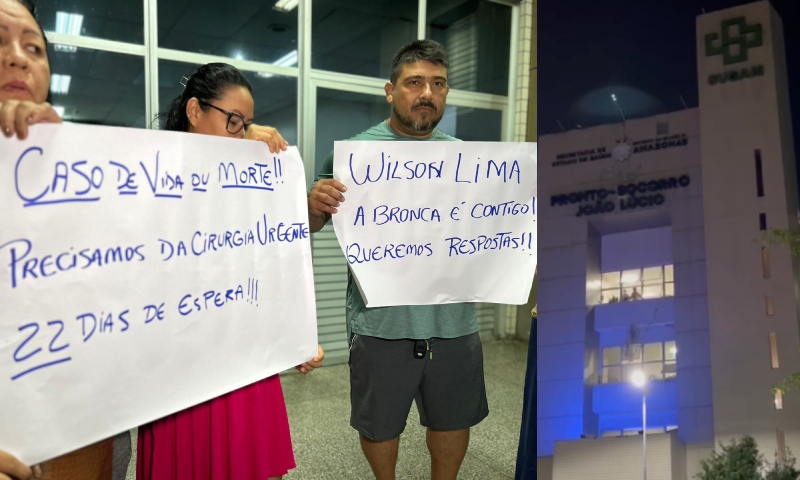 CASO DE VIDA OU MORTE!!
PRECISAMOS DA CIRURGIA URGENTE
22 DIAS DE ESPERA!!!
WILSON LIMA
A BRONCA É CONTIGO!
QUEREMOS RESPOSTAS!!
SUSAM
SECRETARIA DE
ESTADO DE SAÚDE
AMAZONAS
PRONTO-SOCORRO
JOÃO LÚCIO